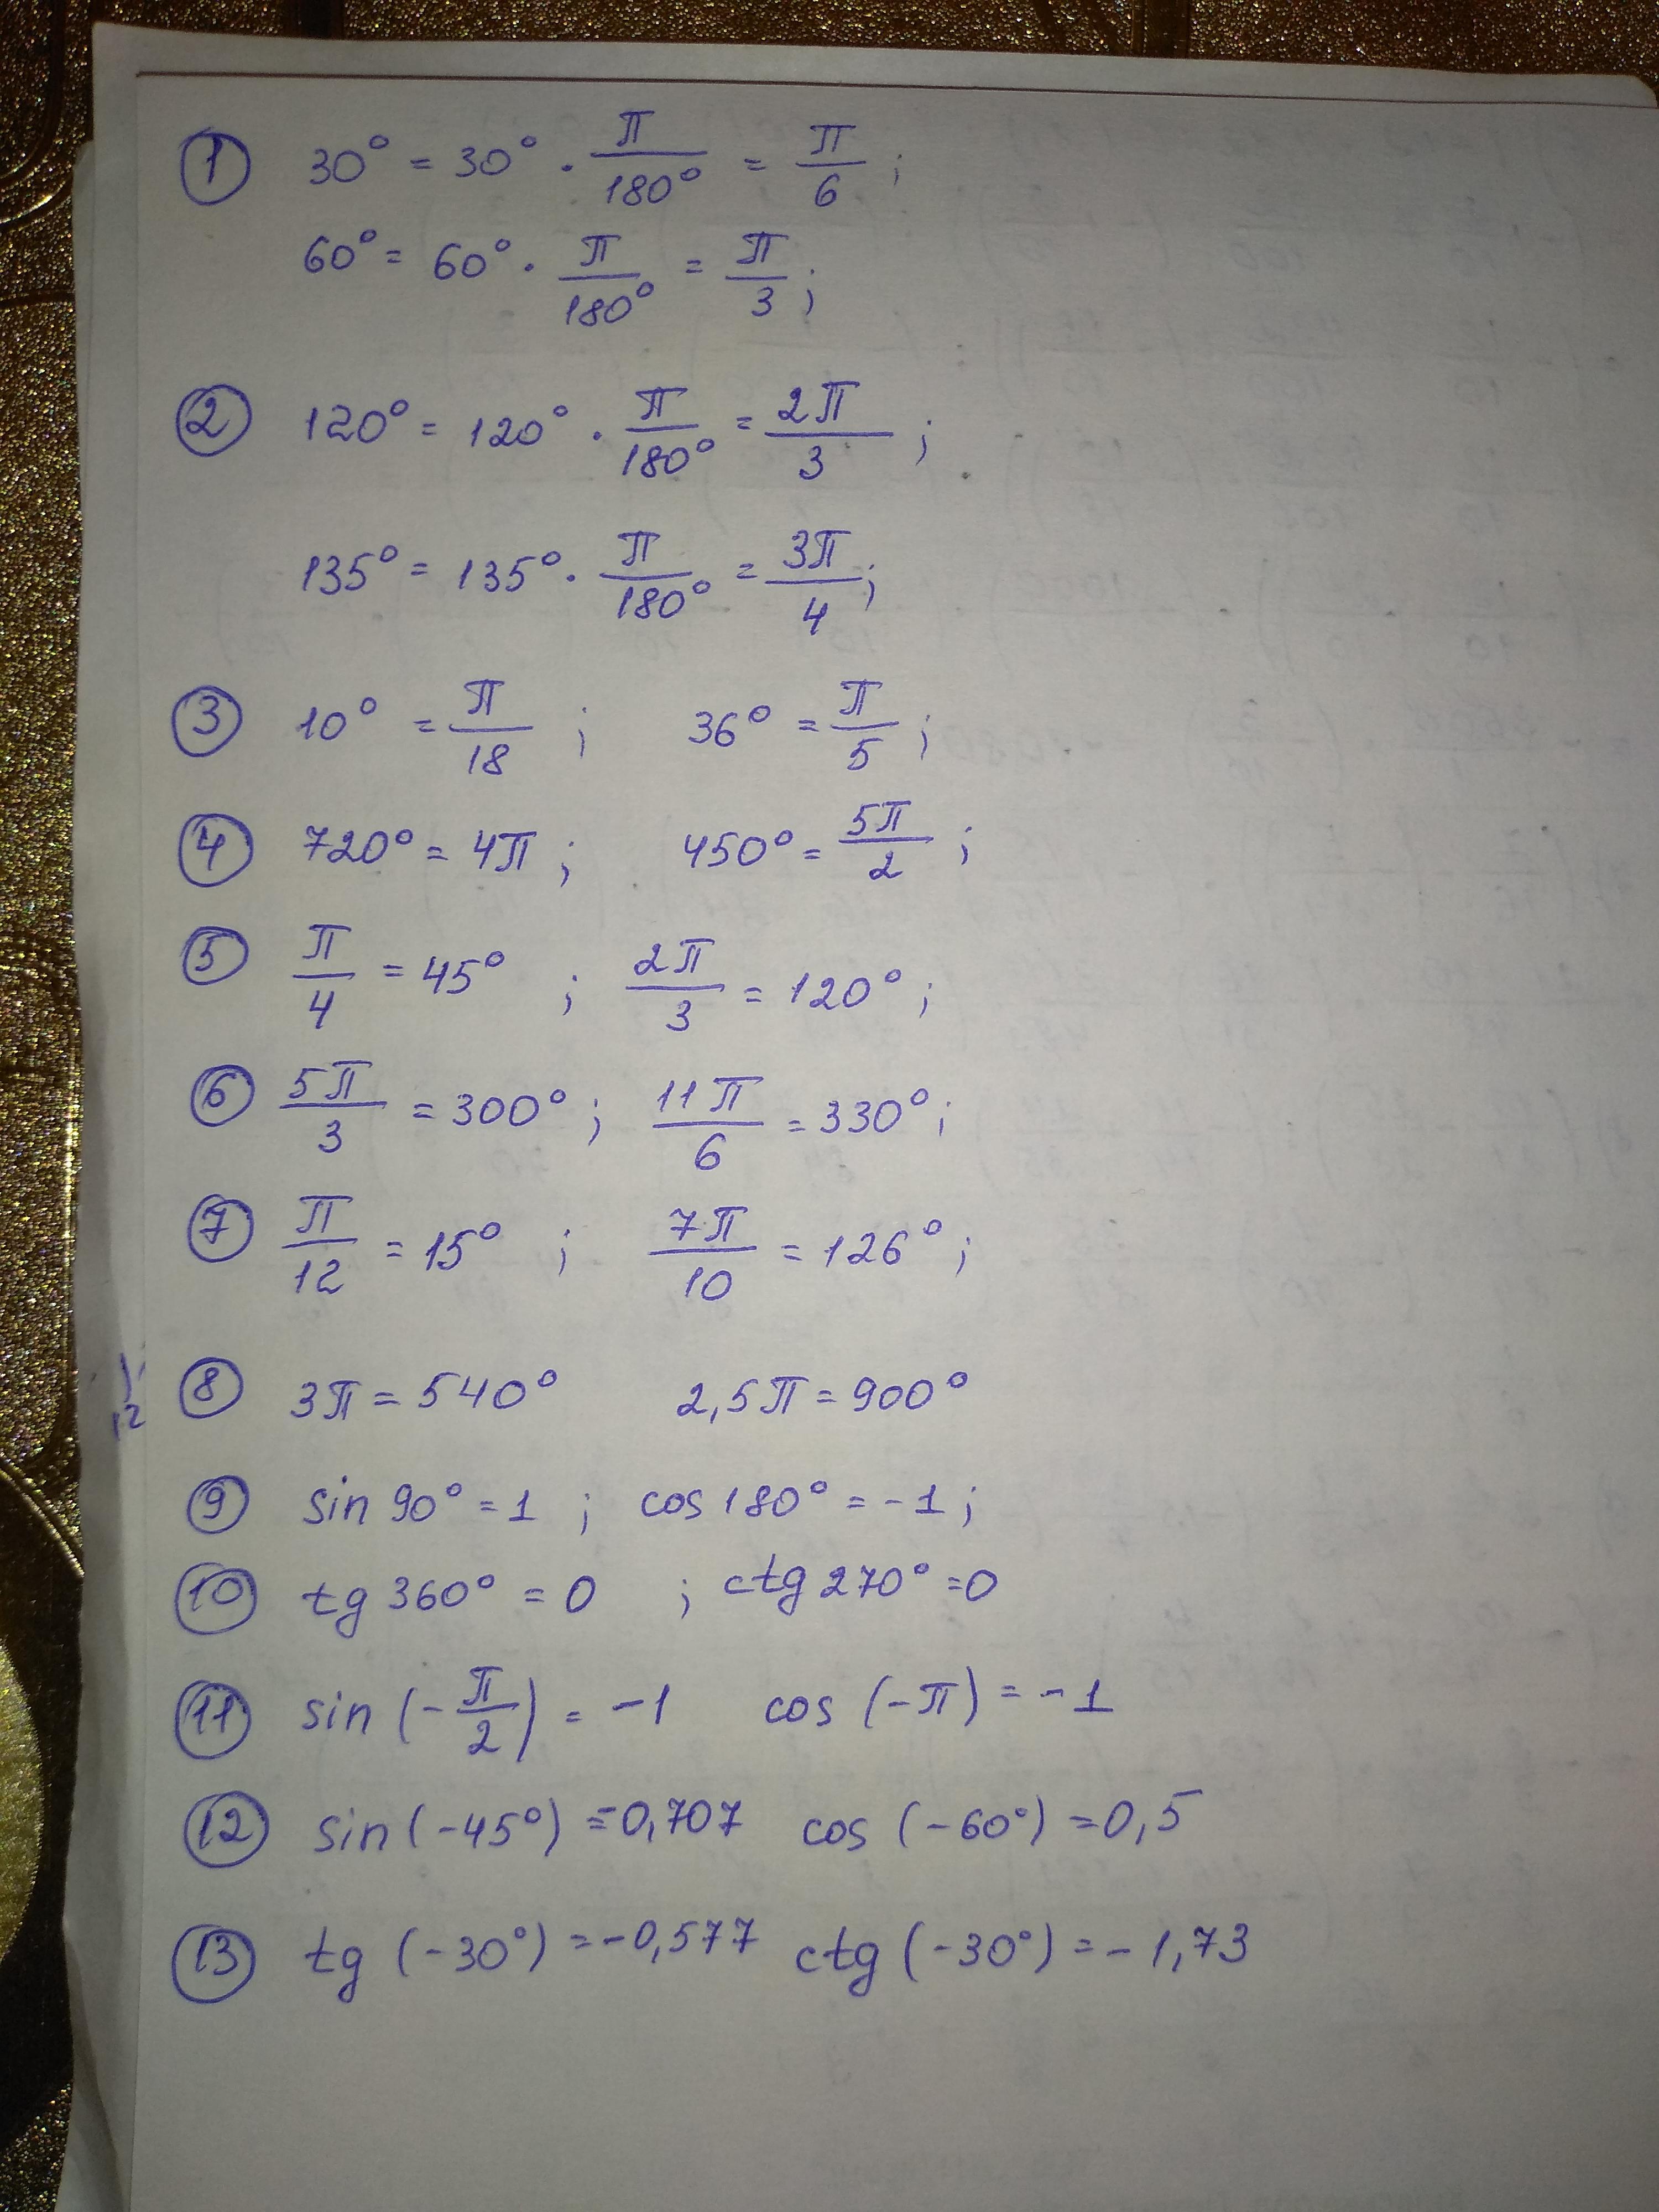 ① 30° = 30° · π/180° = π/6 ;
60° = 60° · π/180° = π/3 ;
② 120° = 120° · π/180° = 2π/3 ;
135° = 135° · π/180° = 3π/4 ;
③ 10° = π/18 ; 36° = π/5 ;
④ 720° = 4π ; 450° = 5π/2 ;
⑤ π/4 = 45° ; 2π/3 = 120° ;
⑥ 5π/3 = 300° ; 11π/6 = 330° ;
⑦ π/12 = 15° ; 7π/10 = 126° ;
⑧ 3π = 540° 2,5π = 900°
⑨ sin 90° = 1 ; cos 180° = -1 ;
⑩ tg 360° = 0 ; ctg 270° = 0
⑪ sin (-π/2) = -1 cos (-π) = -1
⑫ sin (-45°) = 0,707 cos (-60°) = 0,5
⑬ tg (-30°) = -0,577 ctg (-30°) = -1,73